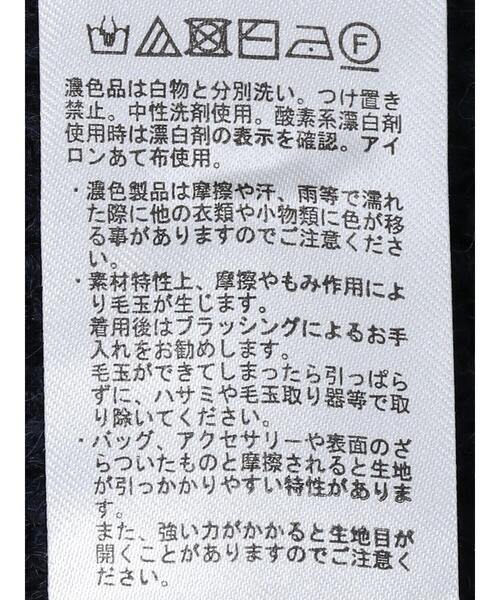 F
濃色品は白物と分別洗い。つけ置き
禁止。中性洗剤使用。酸素系漂白剤
使用時は漂白剤の表示を確認。アイ
ロンあて布使用。
・濃色製品は摩擦や汗、雨等で濡れ
た際に他の衣類や小物類に色が移
る事がありますのでご注意くださ
い。
・素材特性上、摩擦やもみ作用によ
り毛玉が生じます。
着用後はブラッシングによるお手
入れをお勧めします。
毛玉ができてしまったら引っぱら
ずに、ハサミや毛玉取り器等で取
り除いてください。
・バッグ、アクセサリーや表面のざ
らついたものと摩擦されると生地
が引っかかりやすい特性がありま
す。
また、強い力がかかると生地目が
開くことがありますのでご注意く
ださい。